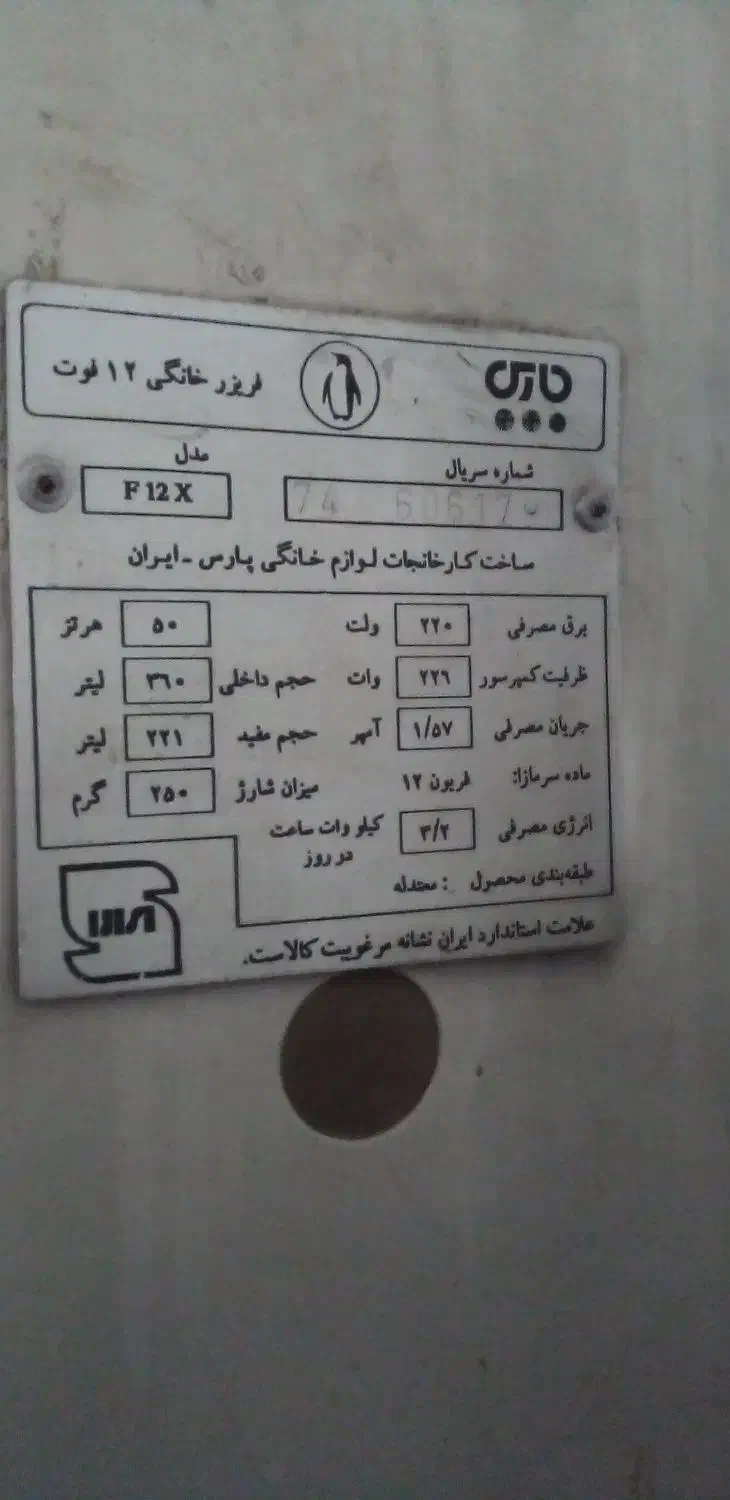 پارس
فریزر خانگی ۱۲ فوت
شماره سریال مدل
74 F 12 X
ساخت کارخانجات لوازم خانگی پارس - ایران
برق مصرفی ۲۲۰ ولت ۵۰ هرتز
ظرفیت کمپرسور ۲۲۶ وات حجم داخلی ۳۶۰ لیتر
جریان مصرفی ۱/۵۷ آمپر حجم مفید ۲۲۱ لیتر
ماده سرمازا: فریون ۱۲ میزان شارژ ۲۵۰ گرم
انرژی مصرفی ۳/۲ کیلو وات ساعت
در روز
طبقه‌بندی محصول : معتدله
علامت استاندارد ایران نشانه مرغوبیت کالاست.